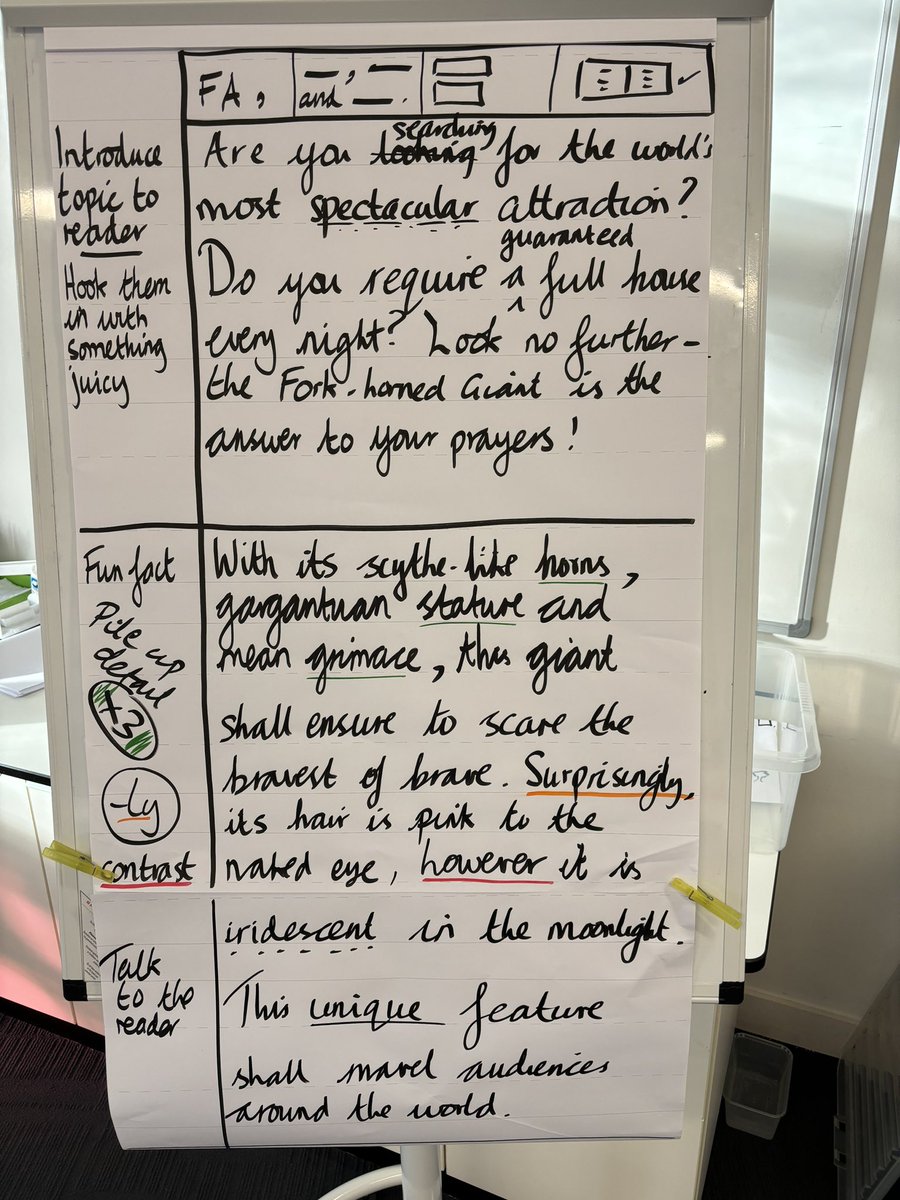 FA,
and , .
Introduce
topic to
reader
Hook them
in with
something
juicy
searching
Are you looking for the world's
most spectacular attraction?
guaranteed
Do you require a full house
every night? Look no further -
the Fork-horned Giant is the
answer to your prayers!
Fun fact
Pile up
detail
+3
-ly
contrast
With its scythe-like horns,
gargantuan stature and
mean grimace, this giant
shall ensure to scare the
bravest of brave. Surprisingly,
its hair is pink to the
naked eye, however it is
iridescent in the moonlight.
Talk
to the
reader
This unique feature
shall marvel audiences
around the world.